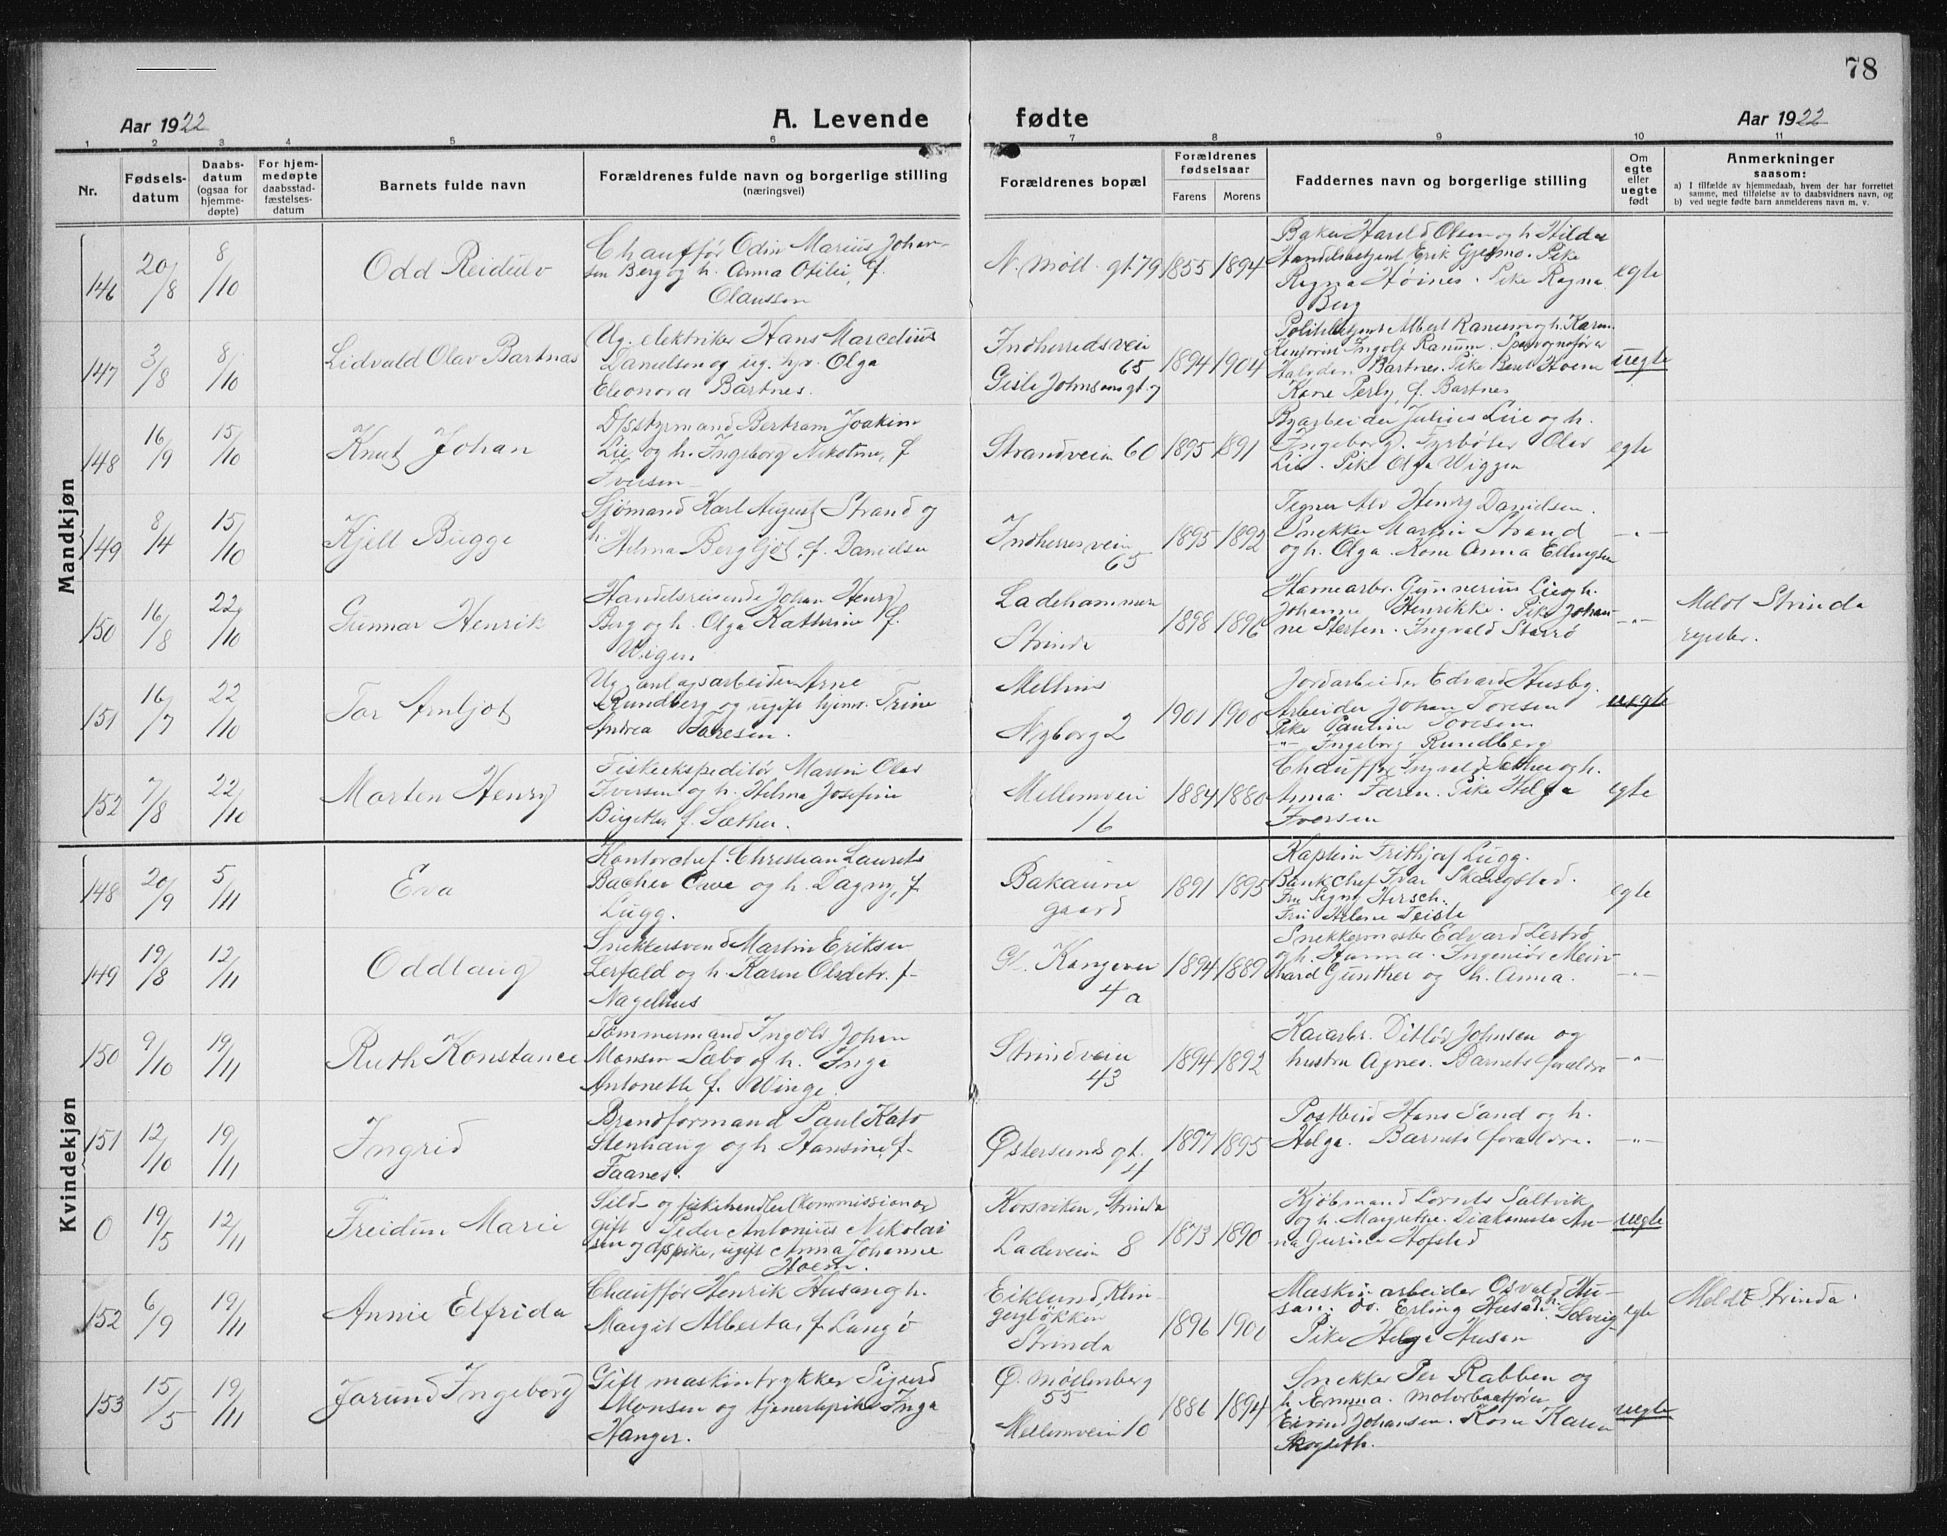 78
Aar 1922
A. Levende fødte
Aar 1922
1 2 3 4 5 6 7 8 9 10 11
Nr.
Fødsels-
datum
Daabs-
datum
(ogsaa for
hjemme-
døpte)
For hjem-
medøpte
daabsstad-
fæstelses-
datum
Barnets fulde navn
Forældrenes fulde navn og borgerlige stilling
(næringsvei)
Forældrenes bopæl
Forældrenes
fødselsaar
Farens Morens
Faddernes navn og borgerlige stilling
Om
egte
eller
uegte
født
Anmerkninger
saasom:
a) I tilfælde av hjemmedaab, hvem der har forrettet
samme, med tilføielse av to daabsvidners navn, og
b) ved uegte fødte barn anmelderens navn m. v.
Mandkjøn
146 20/8 8/10
Odd Reidulv
Chauffør Odin Marius Johan-
sen Berg og h. Anna Otilie, f.
Olaussen
N. Møll. gt. 79
1855 1894
Baker Harald Olsen og h. Hilda
Handelsbetjent Erik Gjelmo. Pike
Ragna Høines. Pike Ragna
Berg
egte
147 3/8 8/10
Lidvald Olav Bartnas
Ug. elektriker Hans Marcelius
Danielsen og ug. hjv. Olga
Eleonora Bartnes.
Indherredsveien
65
Gisle Johnsens gt. 9
1894 1904
Politibetjent Albert Ranum og h. Karen.
Kontorist Ingolf Ranum. Sporvognsfører
Halvdan Bartnes. Pike Beret Hoem
Kone Perly, f. Bartnes
uegte
148 16/9 15/10
Knut Johan
D/sstyrmand Bertram Joakim
Lie og h. Ingeborg Nikoline, f
Iversen
Strandveien 60
1895 1891
Byarbeider Julius Lie og h.
Ingeborg. Fyrbøter Olav
Lie. Pike Olga Wiggen
egte
149 8/4 15/10
Kjell Bugge
Sjømand Karl August Strand og
h. Helma Bergljot, f. Danielsen
Indherresveien
65
1895 1892
Tegner Alv Henry Danielsen.
Snekker Martin Strand
og h. Olga. Kone Anna Ellingsen
-"-
150 16/8 22/10
Gunnar Henrik
Handelsreisende Johan Henry
Berg og h. Olga Kathrine f.
Wigen
Ladehammeren
Strinda
1898 1896
Havnearbr. Gunnerius Lie og h.
Johanne Henrikke. Pike Johan-
ne Sterten. Ingvald Starrø
-"-
Meldt Strinda
151 16/7 22/10
Tor Arnljot
Ug. anlægsarbeider Arne
Rundberg og ugift hjemv. Trine
Andrea Toresen.
Melhus
Nyborg 2
1901 1900
Jordarbeider Edvard Husby.
Arbeider Johan Toresen
Pike Pauline Toresen
-"- Ingeborg Rundberg
uegte
152 7/8 22/10
Morten Henry
Fiskeekspeditør Martin Olav
Iversen og h. Helma Josefine
Birgitte f. Sæther.
Mellemveien
16
1884 1880
Chauffør Ingvald Sæther og h.
Anna Færen. Pike Helga
Iversen
egte
Kvindekjøn
148 20/9 5/11
Eva
Kontorchef Christian Laurits
Bacher Owe og h. Dagny, f.
Lugg.
Bakaune
gaard
1891 1895
Kaptein Frithjof Lugg.
Bankchef Ivar Skangsted.
Fru Signy Hirsch.
Fru Helene Teiste
egte
149 19/8 12/11
Oddlaug
Snekkersvend Martin Eriksen
Lerfald og h. Karen Olsdatr. f.
Nagelhus
Gl. Kongevei
4 a
1894 1889
Snekkermester Edvard Lerbrø
og h. Hanna. Ingeniør Mein-
hard Gunther og h. Anna.
-"-
150 9/10 19/11
Ruth Konstance
Tømmermand Ingolf Johan
Monsen Sæbo og h. Inga
Antonette f. Winge.
Strindveien
43
1894 1892
Kaiarbr. Ditlød Johnsen og
hustru Agnes. Barnets forældre
-"-
151 12/10 19/11
Ingrid
Brandformand Paul Kato
Stenhaug og h. Hansine, f.
Faanes.
Østersunds gt.
4
1897 1895
Postbud Hans Sand og h.
Helga. Barnets forældre.
-"-
0 19/5 12/11
Freidun Marie
Sild- og fiskehandler (kommissionær)
gift Peder Antonius Nikolai
sen og pike, ugift Anna Johanne
Hoem.
Korsviken, Strinda
Ladeveien 8
1873 1890
Kjøbmand Lornts Saltvik
og h. Margrethe. Diakonisse An-
na Gurine Hofstad
uegte
152 6/9 19/11
Annie Elfrida
Chauffør Henrik Husan og h.
Margit Alberta, f. Langø
Eiklund, Klin-
gerløkken
Strinda
1896 1901
Maskinarbeider Osvald Hu-
san. ov. Erling Husan h. Solveig
Pike Helga Husan
egte
Meldt Strinda.
153 15/5 19/11
Jorund Ingeborg
Gift maskintrykker Sigurd
Monsen og tjenestepike Inga
Hanger.
Ø. Møllenberg
55
Mellemveien 10
1886 1894
Snekker Per Rabben og
h. Emma. Motorbaatfører
Eivind Johansen. Kone Karen
Skogseth.
uegte